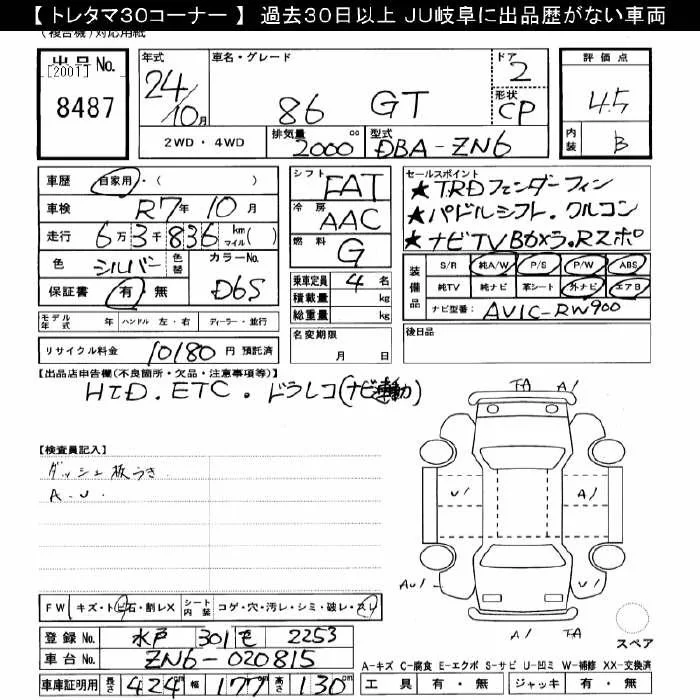 【トレタマ30コーナー】 過去30日以上 JU岐阜に出品歴がない車両
(複合機)対応用紙
出品No. [2001] 8487
年式 24/10月
車名・グレード 86 GT
ドア 2
形状 CP
評価点 4.5
内装 B
2WD・4WD
排気量 2000 cc
型式 DBA-ZN6
車歴 自家用・( )
車検 R7年10月
走行 6万3千836 km マイル( )
色 シルバー 色替 カラーNo. D6S
保証書 有・無
モデル年式 年 ハンドル 左・右 ディーラー・並行
リサイクル料金 10180 円 預託済
シフト FAT
冷房 AAC
燃料 G
乗車定員 4 名
積載量 kg
総重量 kg
名変期限 月 日
セールスポイント
★TRDフェンダーフィン
★パドルシフト.クルコン
★ナビTVBカメラ.Rスポ
装備品 S/R 純A/W P/S P/W ABS
純TV 純ナビ 革シート 外ナビ エアB
ナビ型番: AVIC-RW900
後日品
【出品店申告欄(不良箇所・欠品・注意事項等)】
HID.ETC.ドラレコ(ナビ連動)
【検査員記入】
ダッシュ板うき.
A.U.
TA A1
U1 A1
AU1 A1
A1 TA
スペア
FW キズ・トビ石・割レX シート内装 コゲ・穴・汚レ・シミ・破レ・スレ
登録No. 水戸 301 モ 2253
車台No. ZN6-020815
車庫証明用 長さ 424 cm 幅 177 cm 高さ 130 cm
A-キズ C-腐食 E-エクボ S-サビ U-凹ミ W-補修 XX-交換済
工具 有・無 ジャッキ 有・無